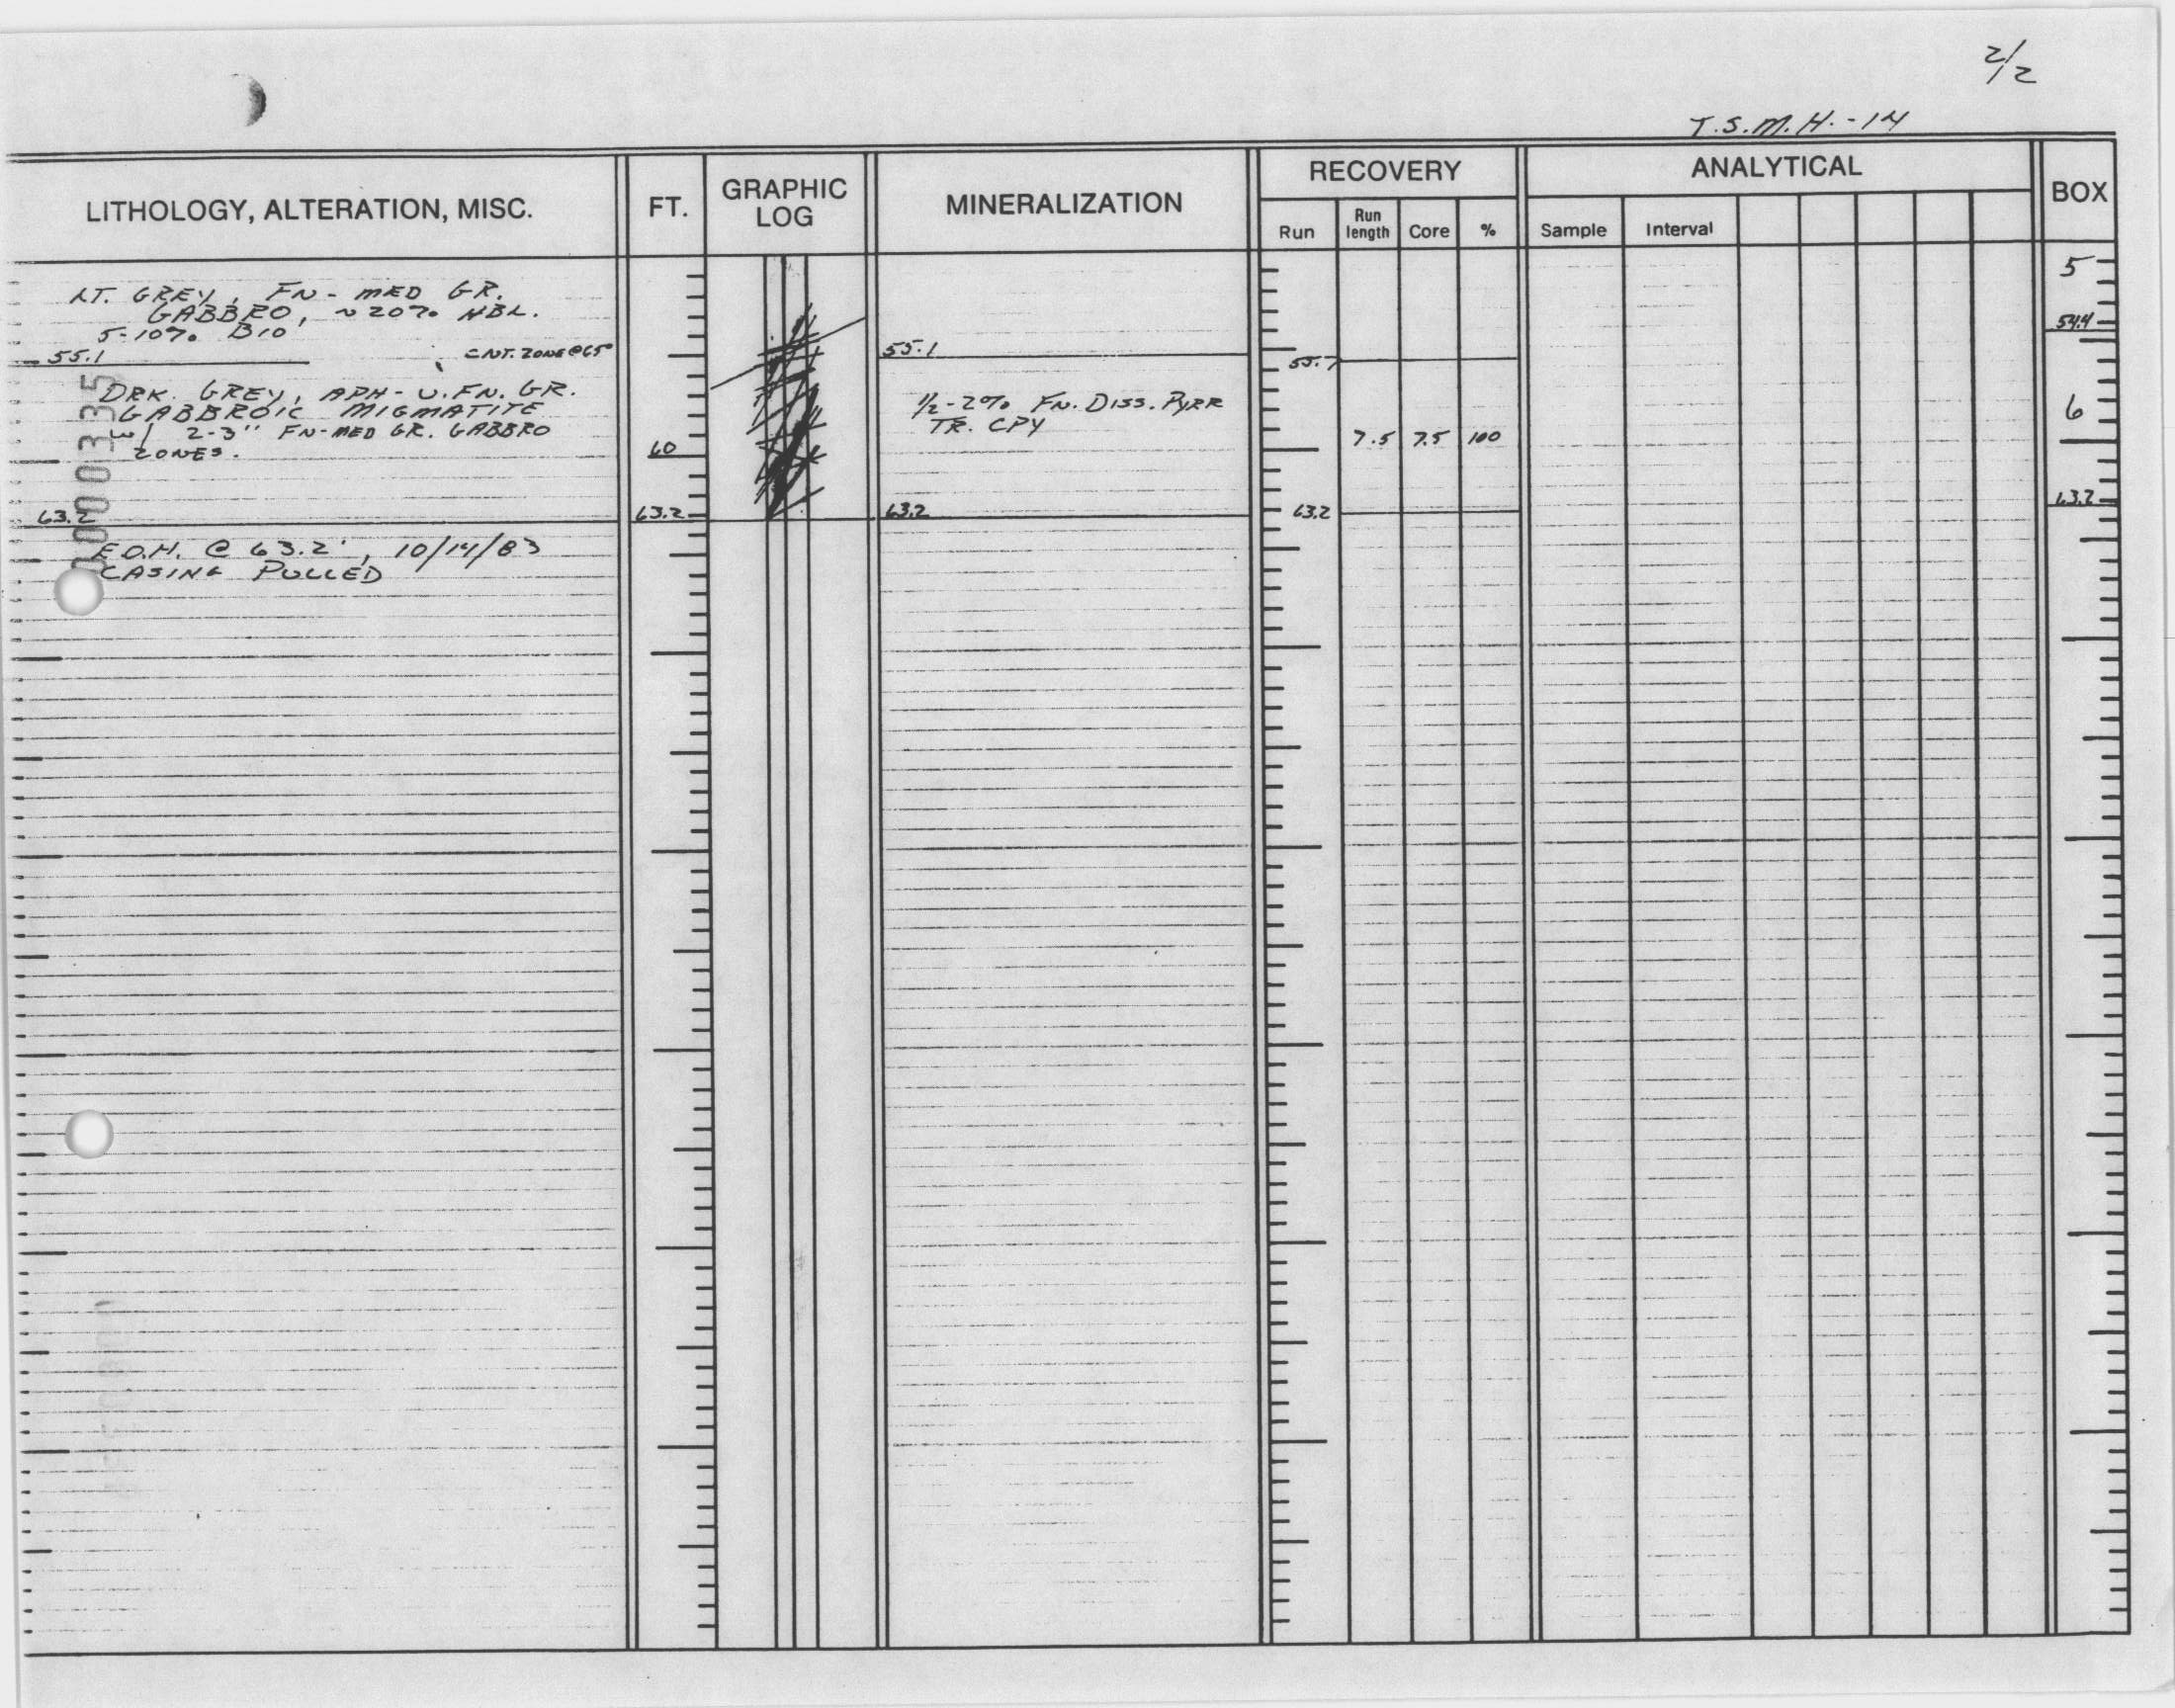 2/2
T.S.M.H.-14
LITHOLOGY, ALTERATION, MISC.
FT.
GRAPHIC
LOG
MINERALIZATION
RECOVERY
Run
Run
length
Core
%
ANALYTICAL
Sample
Interval
BOX
LT. GREY, FN-MED GR.
GABBRO, ~20% HBL.
5-10% BIO
55.1
CNT. ZONE @65°
DRK. GREY, APH-V.FN. GR.
GABBROIC MIGMATITE
W/ 2-3" FN-MED GR. GABBRO
ZONES.
63.2
E.O.H. @ 63.2', 10/14/83
CASING PULLED
60
63.2
55.1
1/2-2% FN. DISS. PYRR
TR. CPY
63.2
55.7
7.5 7.5 100
63.2
5
54.4
6
63.2
0000335